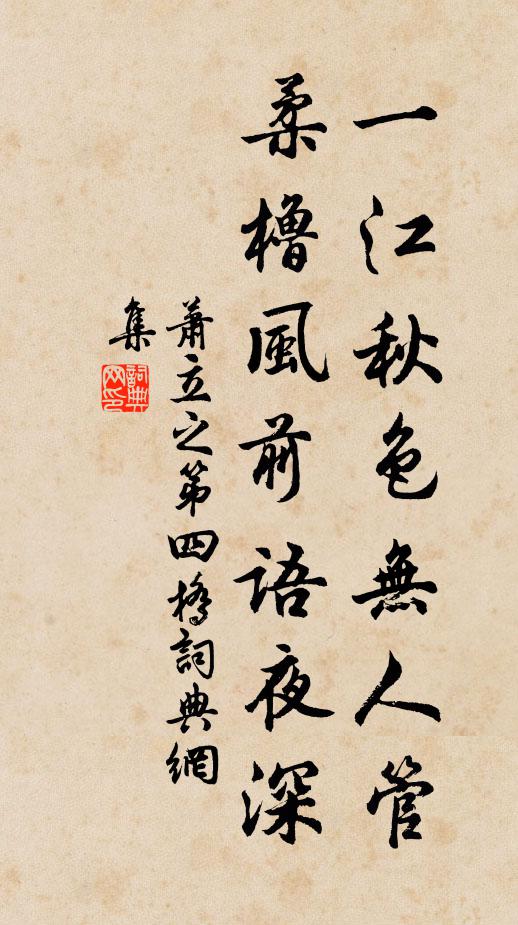 一江秋色無人管
柔櫓風前語夜深
蕭立之第四橋詞典網
集
詞典
网印